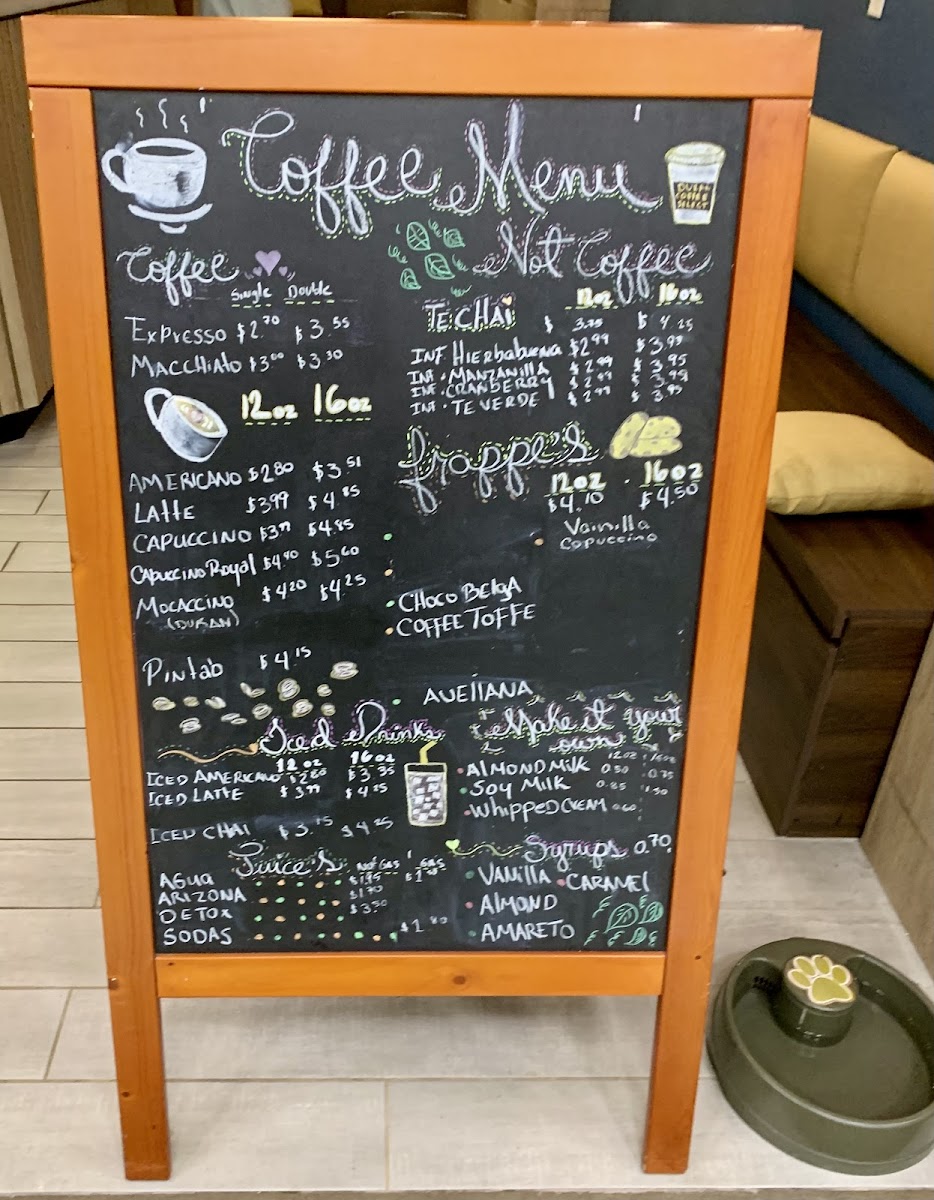 Coffee Menu
DURAN
COFFEE
SELECT
Coffee
Single Double
Expresso $2.70 $3.55
Macchiato $3.00 $3.30
12oz 16oz
AMERICANO $2.80 $3.51
LAtte $3.99 $4.85
CAPUCCINO $3.99 $4.85
CAPUCCINO Royal $4.40 $5.60
Mocaccino $4.20 $4.25
(DURAN)
Pintab $4.15
Not Coffee
12oz 16oz
TE CHAI $ 3.75 $ 4.25
INF. Hierbabuena $2.99 $3.95
INF. MANZANILLA $2.99 $3.95
INF. CRANBERRY $2.99 $3.95
INF. TE VERDE $2.99 $3.95
frappe's
12oz . 16oz
$4.10 $4.50
Vainilla
Capuccino
CHOCO BELGA
COFFEE TOFFE
AVELLANA
Iced Drinks
12oz 16oz
ICED AMERICANO $2.80 $3.35
ICED LATTE $3.99 $4.25
ICED CHAI $3.75 $4.25
Make it your
own
12oz 16oz
ALMOND Milk 0.50 0.75
SOY MILK 0.85 1.50
WHIPPED CREAM 0.60
Juice's NOT GAS GAS
Agua $1.95
ARIZONA $1.70
DETOX $3.50
SODAS $1.80
Syrups 0.70
VANILLA CARAMEL
ALMOND
AMARETO